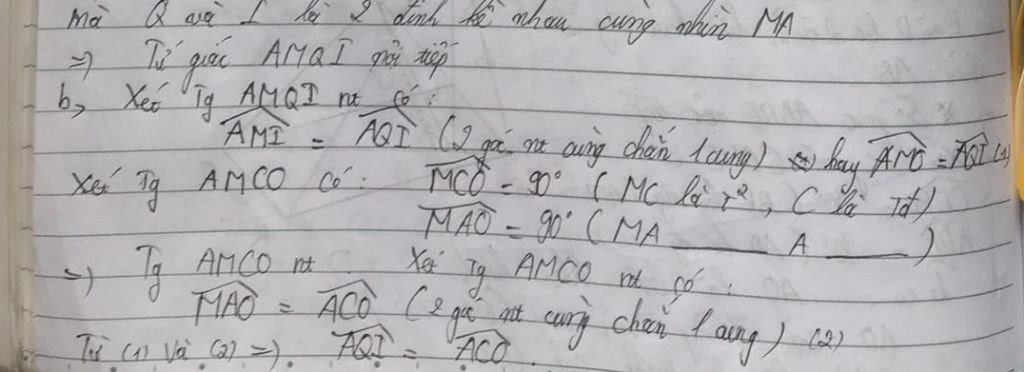 mà Q và I là 2 đỉnh kề nhau cùng nhìn MA
=) Tứ giác AMQI nội tiếp
b, Xét Tg AMQI nt có :
AMI = AQI (2 góc nt cùng chắn 1 cung) hay AMO = AQI (1)
Xét Tg AMCO có : MCO = 90° ( MC là t², C là Tđ)
MAO = 90° ( MA ___ A ___ )
=) Tg AMCO nt Xét Tg AMCO nt có :
MAO = ACO (2 góc nt cùng chắn 1 cung) (2)
Từ (1) và (2) =) AQI = ACO .